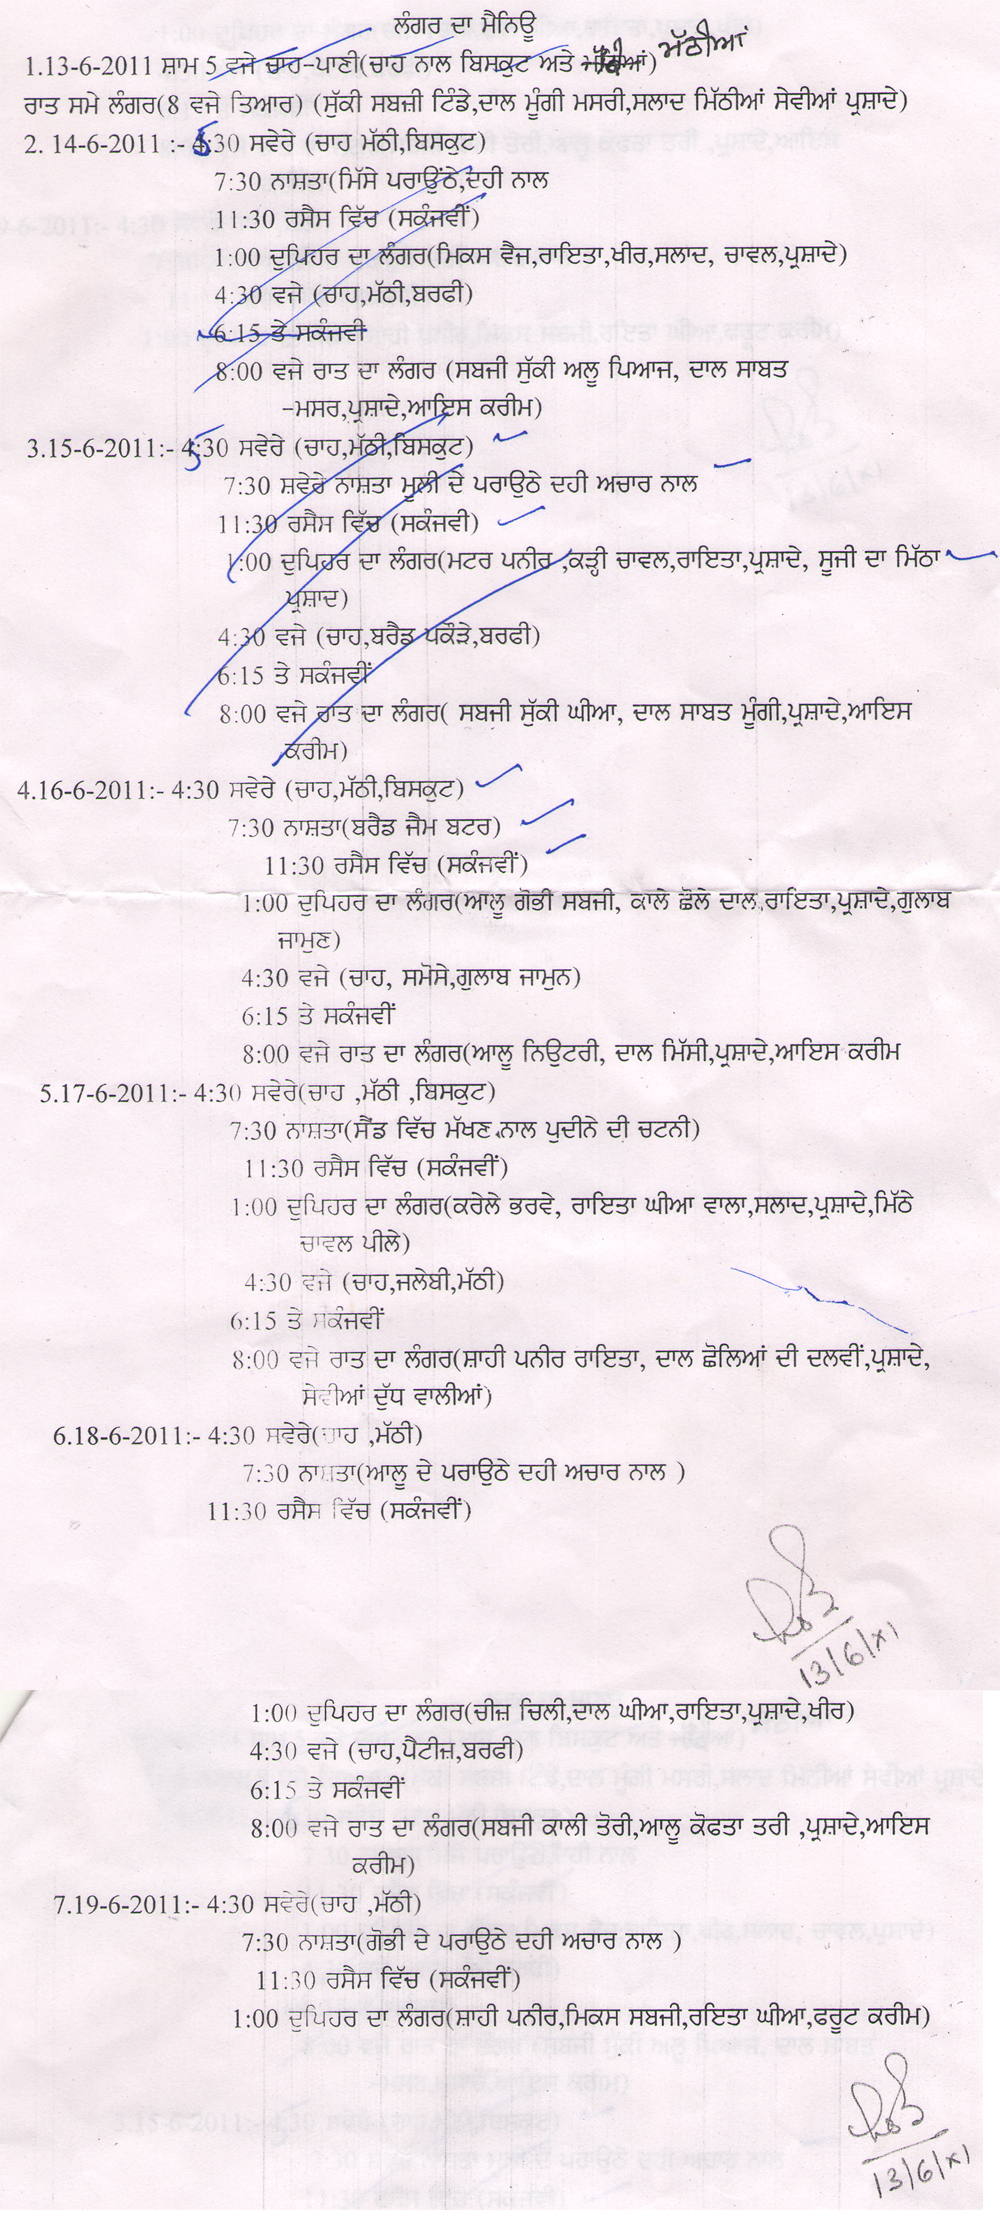 ਲੰਗਰ ਦਾ ਮੈਨਿਊ
1.13-6-2011 ਸ਼ਾਮ 5 ਵਜੇ ਚਾਹ-ਪਾਣੀ(ਚਾਹ ਨਾਲ ਬਿਸਕੁਟ ਅਤੇ ਮੱਠੀਆਂ)
ਰਾਤ ਸਮੇ ਲੰਗਰ(8 ਵਜੇ ਤਿਆਰ) (ਸੁੱਕੀ ਸਬਜ਼ੀ ਟਿੰਡੇ,ਦਾਲ ਮੂੰਗੀ ਮਸਰੀ,ਸਲਾਦ ਮਿੱਠੀਆਂ ਸੇਵੀਆਂ ਪ੍ਰਸ਼ਾਦੇ)
2. 14-6-2011 :- 5:30 ਸਵੇਰੇ (ਚਾਹ ਮੱਠੀ,ਬਿਸਕੁਟ)
7:30 ਨਾਸ਼ਤਾ(ਮਿੱਸੇ ਪਰਾਉਂਠੇ,ਦਹੀ ਨਾਲ
11:30 ਰਸੈਸ ਵਿੱਚ (ਸਕੰਜਵੀਂ)
1:00 ਦੁਪਿਹਰ ਦਾ ਲੰਗਰ(ਮਿਕਸ ਵੈਜ,ਰਾਇਤਾ,ਖੀਰ,ਸਲਾਦ, ਚਾਵਲ,ਪ੍ਰਸ਼ਾਦੇ)
4:30 ਵਜੇ (ਚਾਹ,ਮੱਠੀ,ਬਰਫੀ)
6:15 ਤੇ ਸਕੰਜਵੀ
8:00 ਵਜੇ ਰਾਤ ਦਾ ਲੰਗਰ (ਸਬਜੀ ਸੁੱਕੀ ਅਲੂ ਪਿਆਜ, ਦਾਲ ਸਾਬਤ
-ਮਸਰ,ਪ੍ਰਸ਼ਾਦੇ,ਆਇਸ ਕਰੀਮ)
3.15-6-2011:- 5:30 ਸਵੇਰੇ (ਚਾਹ,ਮੱਠੀ,ਬਿਸਕੁਟ)
7:30 ਸ਼ਵੇਰੇ ਨਾਸ਼ਤਾ ਮੂਲੀ ਦੇ ਪਰਾਉਠੇ ਦਹੀ ਅਚਾਰ ਨਾਲ
11:30 ਰਸੈਸ ਵਿੱਚ (ਸਕੰਜਵੀ)
1:00 ਦੁਪਿਹਰ ਦਾ ਲੰਗਰ(ਮਟਰ ਪਨੀਰ ,ਕੜ੍ਹੀ ਚਾਵਲ,ਰਾਇਤਾ,ਪ੍ਰਸ਼ਾਦੇ, ਸੂਜੀ ਦਾ ਮਿੱਠਾ
ਪ੍ਰਸ਼ਾਦ)
4:30 ਵਜੇ (ਚਾਹ,ਬਰੈਡ ਪਕੌੜੇ,ਬਰਫੀ)
6:15 ਤੇ ਸਕੰਜਵੀਂ
8:00 ਵਜੇ ਰਾਤ ਦਾ ਲੰਗਰ( ਸਬਜੀ ਸੁੱਕੀ ਘੀਆ, ਦਾਲ ਸਾਬਤ ਮੂੰਗੀ,ਪ੍ਰਸ਼ਾਦੇ,ਆਇਸ
ਕਰੀਮ)
4.16-6-2011:- 4:30 ਸਵੇਰੇ (ਚਾਹ,ਮੱਠੀ,ਬਿਸਕੁਟ)
7:30 ਨਾਸ਼ਤਾ(ਬਰੈਡ ਜੈਮ ਬਟਰ)
11:30 ਰਸੈਸ ਵਿੱਚ (ਸਕੰਜਵੀਂ)
1:00 ਦੁਪਿਹਰ ਦਾ ਲੰਗਰ(ਆਲੂ ਗੋਭੀ ਸਬਜੀ, ਕਾਲੇ ਛੋਲੇ ਦਾਲ,ਰਾਇਤਾ,ਪ੍ਰਸ਼ਾਦੇ,ਗੁਲਾਬ
ਜਾਮੁਣ)
4:30 ਵਜੇ (ਚਾਹ, ਸਮੋਸੇ,ਗੁਲਾਬ ਜਾਮੁਨ)
6:15 ਤੇ ਸਕੰਜਵੀਂ
8:00 ਵਜੇ ਰਾਤ ਦਾ ਲੰਗਰ(ਆਲੂ ਨਿਊਟਰੀ, ਦਾਲ ਮਿੱਸੀ,ਪ੍ਰਸ਼ਾਦੇ,ਆਇਸ ਕਰੀਮ
5.17-6-2011:- 4:30 ਸਵੇਰੇ(ਚਾਹ ,ਮੱਠੀ ,ਬਿਸਕੁਟ)
7:30 ਨਾਸ਼ਤਾ(ਸੈਂਡ ਵਿੱਚ ਮੱਖਣ ਨਾਲ ਪੁਦੀਨੇ ਦੀ ਚਟਨੀ)
11:30 ਰਸੈਸ ਵਿੱਚ (ਸਕੰਜਵੀਂ)
1:00 ਦੁਪਿਹਰ ਦਾ ਲੰਗਰ(ਕਰੇਲੇ ਭਰਵੇ, ਰਾਇਤਾ ਘੀਆ ਵਾਲਾ,ਸਲਾਦ,ਪ੍ਰਸ਼ਾਦੇ,ਮਿੱਠੇ
ਚਾਵਲ ਪੀਲੇ)
4:30 ਵਜੇ (ਚਾਹ,ਜਲੇਬੀ,ਮੱਠੀ)
6:15 ਤੇ ਸਕੰਜਵੀਂ
8:00 ਵਜੇ ਰਾਤ ਦਾ ਲੰਗਰ(ਸ਼ਾਹੀ ਪਨੀਰ ਰਾਇਤਾ, ਦਾਲ ਛੋਲਿਆਂ ਦੀ ਦਲਵੀਂ,ਪ੍ਰਸ਼ਾਦੇ,
ਸੇਵੀਆਂ ਦੁੱਧ ਵਾਲੀਆਂ)
6.18-6-2011:- 4:30 ਸਵੇਰੇ(ਚਾਹ ,ਮੱਠੀ)
7:30 ਨਾਸ਼ਤਾ(ਆਲੂ ਦੇ ਪਰਾਉਠੇ ਦਹੀ ਅਚਾਰ ਨਾਲ )
11:30 ਰਸੈਸ ਵਿੱਚ (ਸਕੰਜਵੀਂ)
13/6/XI
1:00 ਦੁਪਿਹਰ ਦਾ ਲੰਗਰ(ਚੀਜ਼ ਚਿਲੀ,ਦਾਲ ਘੀਆ,ਰਾਇਤਾ,ਪ੍ਰਸ਼ਾਦੇ,ਖੀਰ)
4:30 ਵਜੇ (ਚਾਹ,ਪੈਟੀਜ਼,ਬਰਫੀ)
6:15 ਤੇ ਸਕੰਜਵੀਂ
8:00 ਵਜੇ ਰਾਤ ਦਾ ਲੰਗਰ(ਸਬਜੀ ਕਾਲੀ ਤੋਰੀ,ਆਲੂ ਕੋਫਤਾ ਤਰੀ ,ਪ੍ਰਸ਼ਾਦੇ,ਆਇਸ
ਕਰੀਮ)
7.19-6-2011:- 4:30 ਸਵੇਰੇ(ਚਾਹ ,ਮੱਠੀ)
7:30 ਨਾਸ਼ਤਾ(ਗੋਭੀ ਦੇ ਪਰਾਉਠੇ ਦਹੀ ਅਚਾਰ ਨਾਲ )
11:30 ਰਸੈਸ ਵਿੱਚ (ਸਕੰਜਵੀਂ)
1:00 ਦੁਪਿਹਰ ਦਾ ਲੰਗਰ(ਸ਼ਾਹੀ ਪਨੀਰ,ਮਿਕਸ ਸਬਜੀ,ਰਇਤਾ ਘੀਆ,ਫਰੂਟ ਕਰੀਮ)
13/6/XI